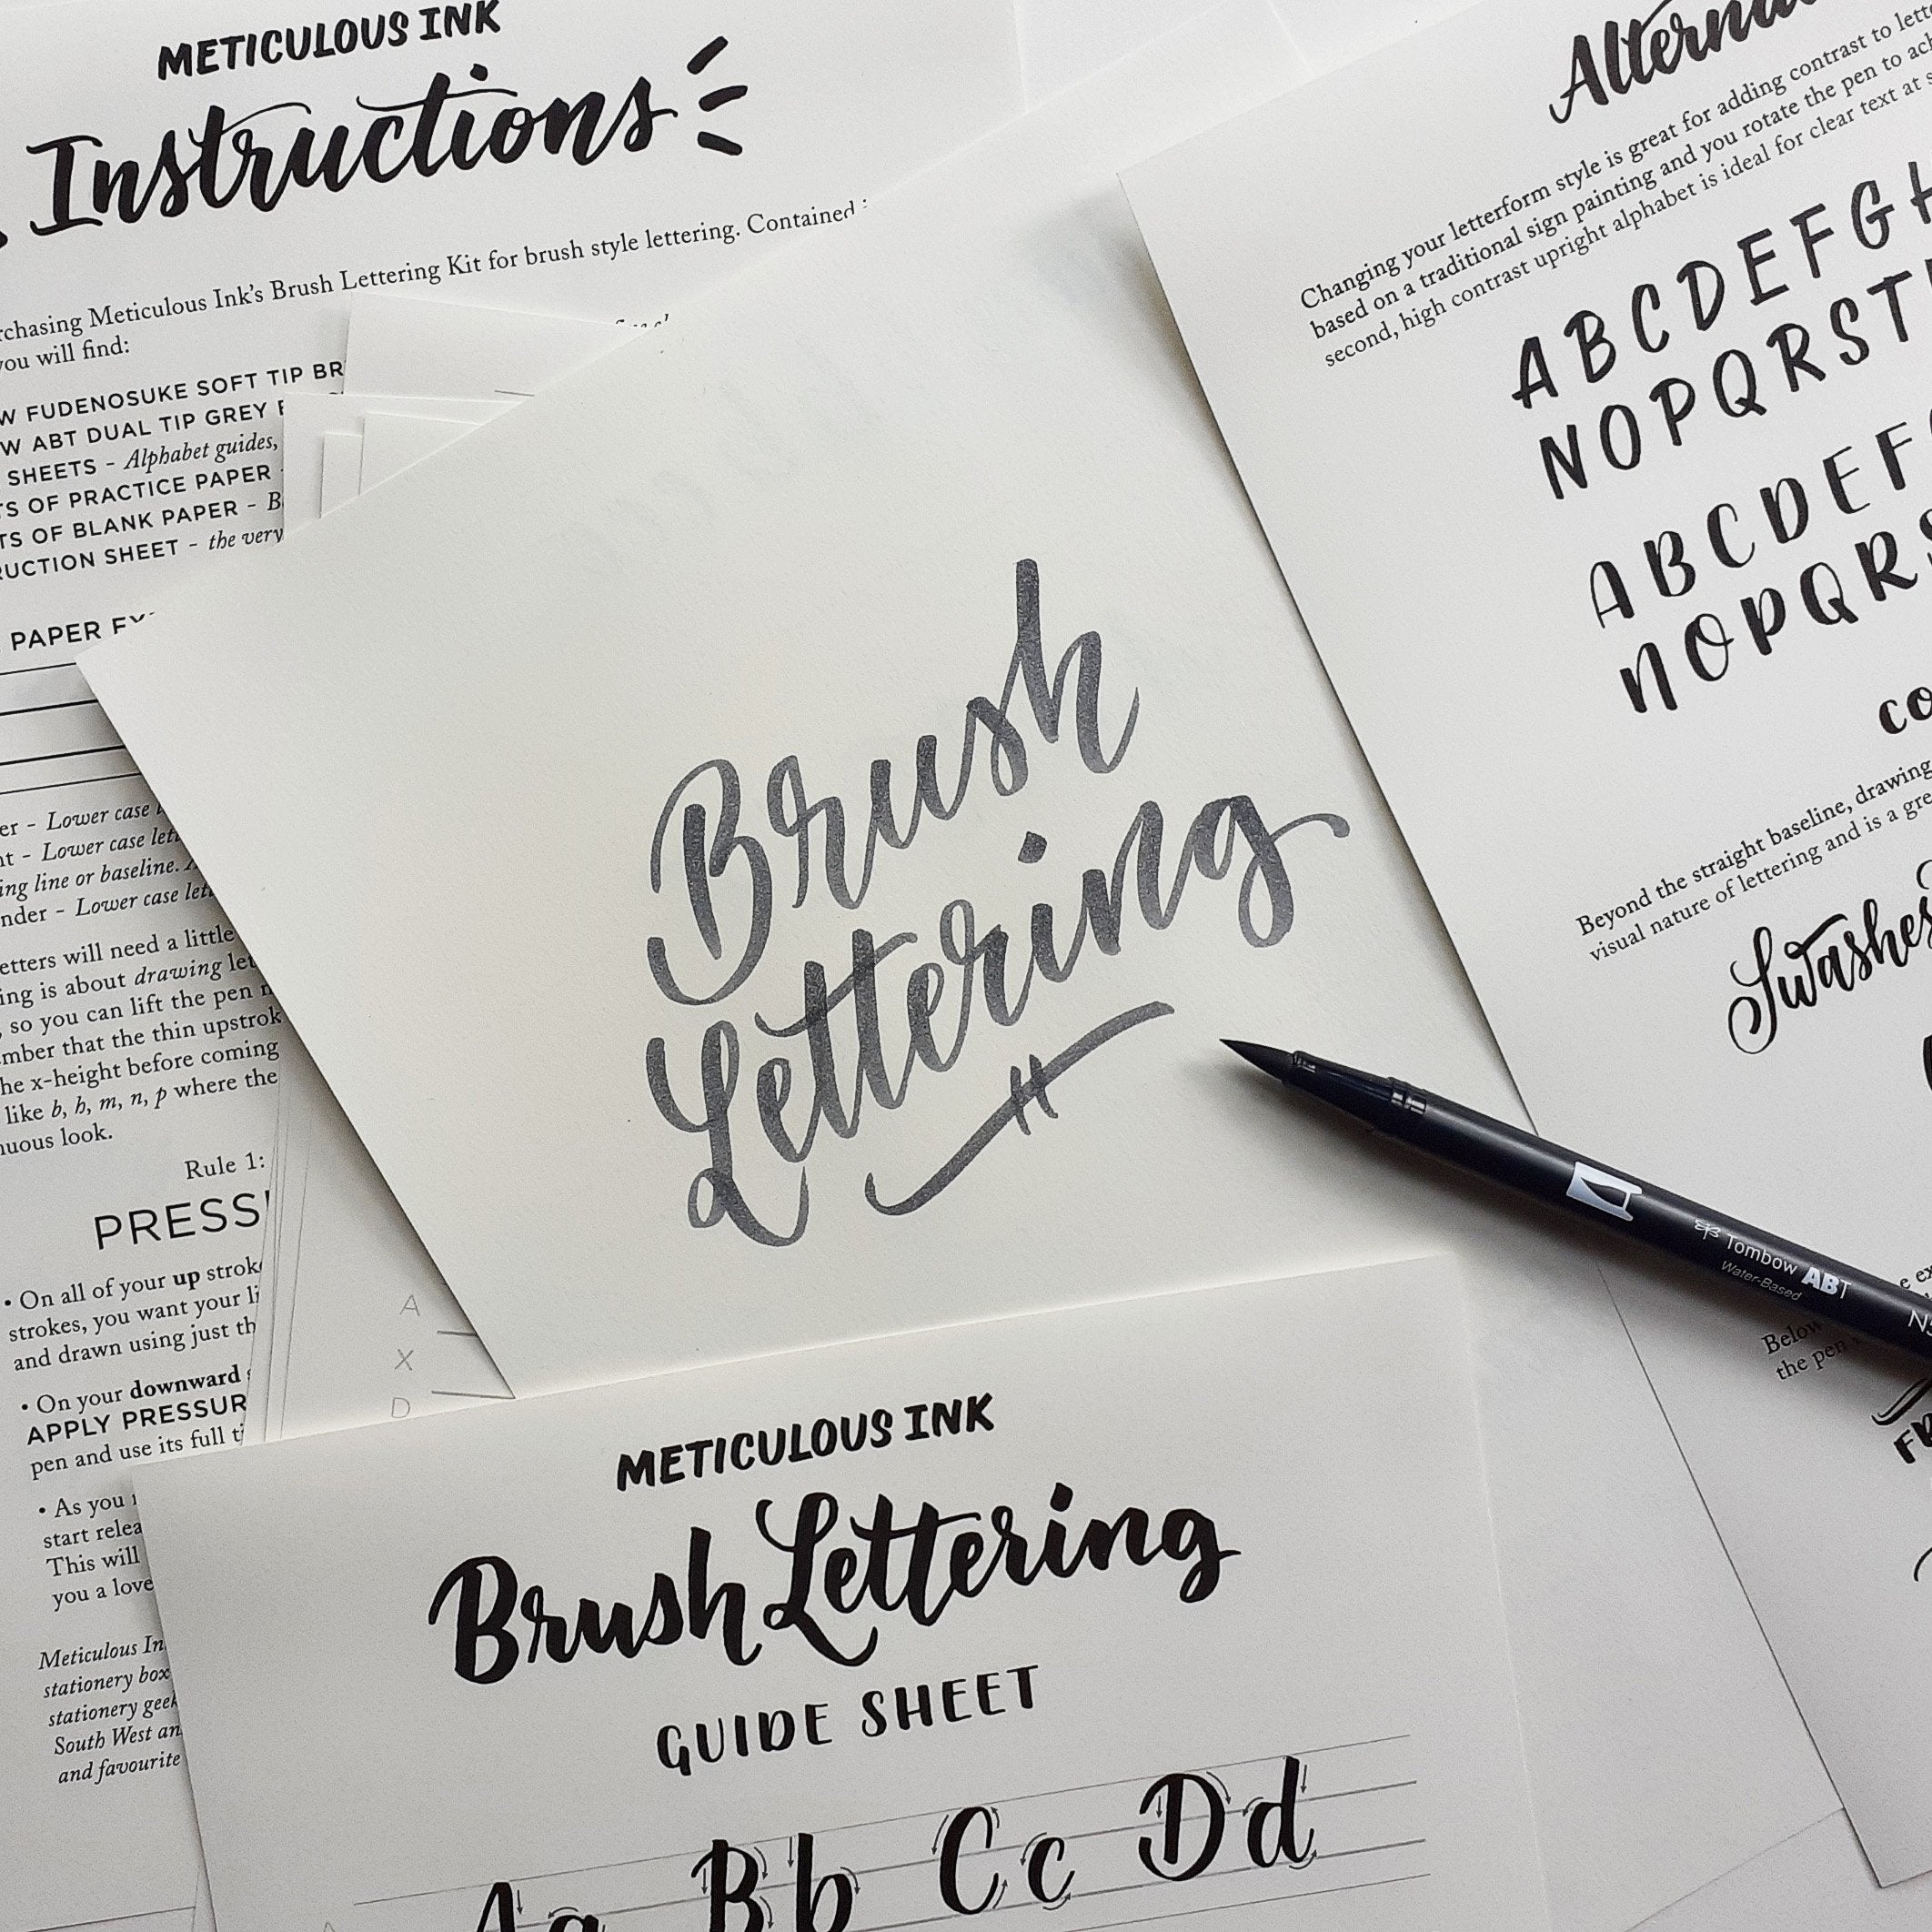 METICULOUS INK
Instructions
chasing Meticulous Ink's Brush Lettering Kit for brush style lettering. Contained
you will find:
FUDENOSUKE SOFT TIP
ABT DUAL TIP GREY
SHEETS - Alphabet guides,
OF PRACTICE PAPER
OF BLANK PAPER -
SHEET - the very
PAPER
- Lower case
- Lower case
line or baseline.
- Lower case
letters will need a little
is about drawing
, so you can lift the pen
that the thin
he x-height before coming
like b, h, m, n, p where the
look.
Rule 1:
• On all of your up
strokes, you want your
and drawn using just
• On your downward
APPLY
pen and use its full
• As you
start
This will
you a
Meticulous
stationery box
stationery
South West
and favourite
A
X
D
Brush
Lettering
Changing your letterform style is great for adding contrast to
based on a traditional sign painting and you rotate the pen to
second, high contrast upright alphabet is ideal for clear text at
ABCDEFGH
NOPQRST
ABCDEF
NOPQRS
Beyond the straight baseline, drawing
visual nature of lettering and is a
Swashes
Below
the pen
Tombow ABT
Water-Based
METICULOUS INK
Brush Lettering
GUIDE SHEET
Aa Bb Cc Dd